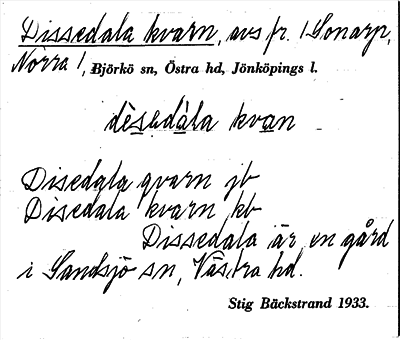 Dissedala kvarn, avs fr. / Sonarp,
Norra /, Björkö sn, Östra hd, Jönköpings l.
dèsedàla kvan
Disedala qvarn jb
Disedala kvarn kb
Dissedala är en gård
i Sandsjö sn, Västra hd.
Stig Bäckstrand 1933.